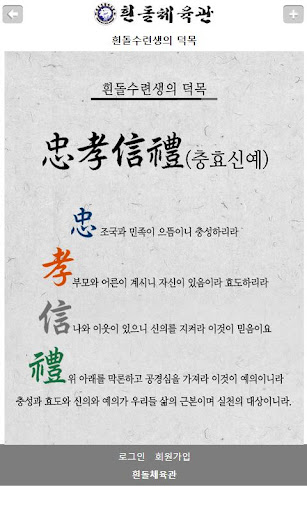 흰돌체육관
흰돌수련생의 덕목
흰돌수련생의 덕목
忠孝信禮(충효신예)
忠 조국과 민족이 으뜸이니 충성하리라
孝 부모와 어른이 계시니 자신이 있음이라 효도하리라
信 나와 이웃이 있으니 신의를 지켜라 이것이 믿음이요
禮 위 아래를 막론하고 공경심을 가져라 이것이 예의이니라
충성과 효도와 신의와 예의가 우리들 삶의 근본이며 실천의 대상이니라.
로그인 회원가입
흰돌체육관